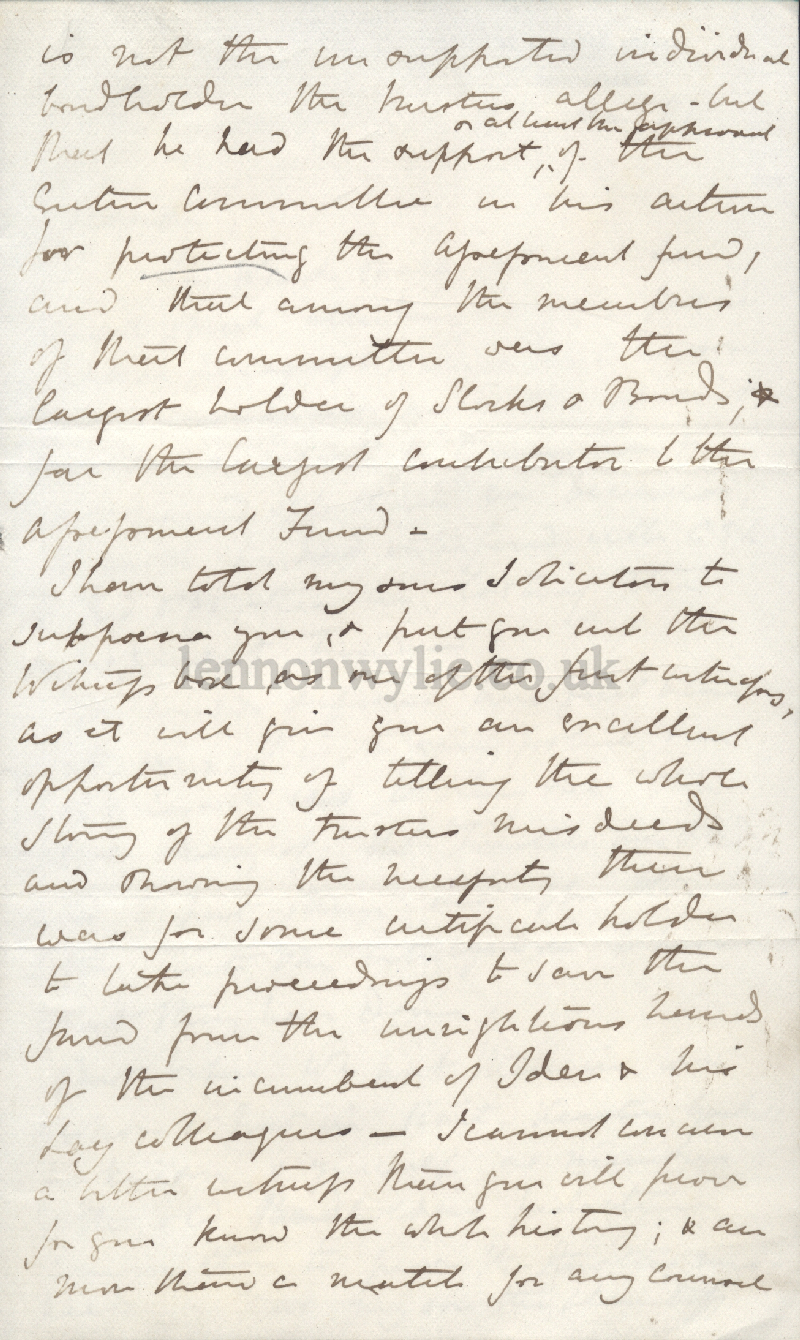 is not the unsupported individual
bondholder the trustees allege - but
or at least the approval
that he had the support,, of the
Entire Committee in his action
for protecting the Assessment fund,
and that among the members
of that committee was the
largest holder of Stocks & Bonds, &
far the largest contributor to the
Assessment Fund -
I have told my own Solicitors to
subpoena you, & put you into the
Witness box as one of the first witnesses,
as it will give you an excellent
opportunity of telling the whole
Story of the trustees misdeeds
and showing the necessity there
was for some certificate holder
to take proceedings to save the
fund from the unrighteous hands
of the incumbent of Iden & his
Lay colleagues - I cannot conceive
a better witness than you will prove
for you know the whole history; & are
more than a match for any Counsel
lennonwylie.co.uk